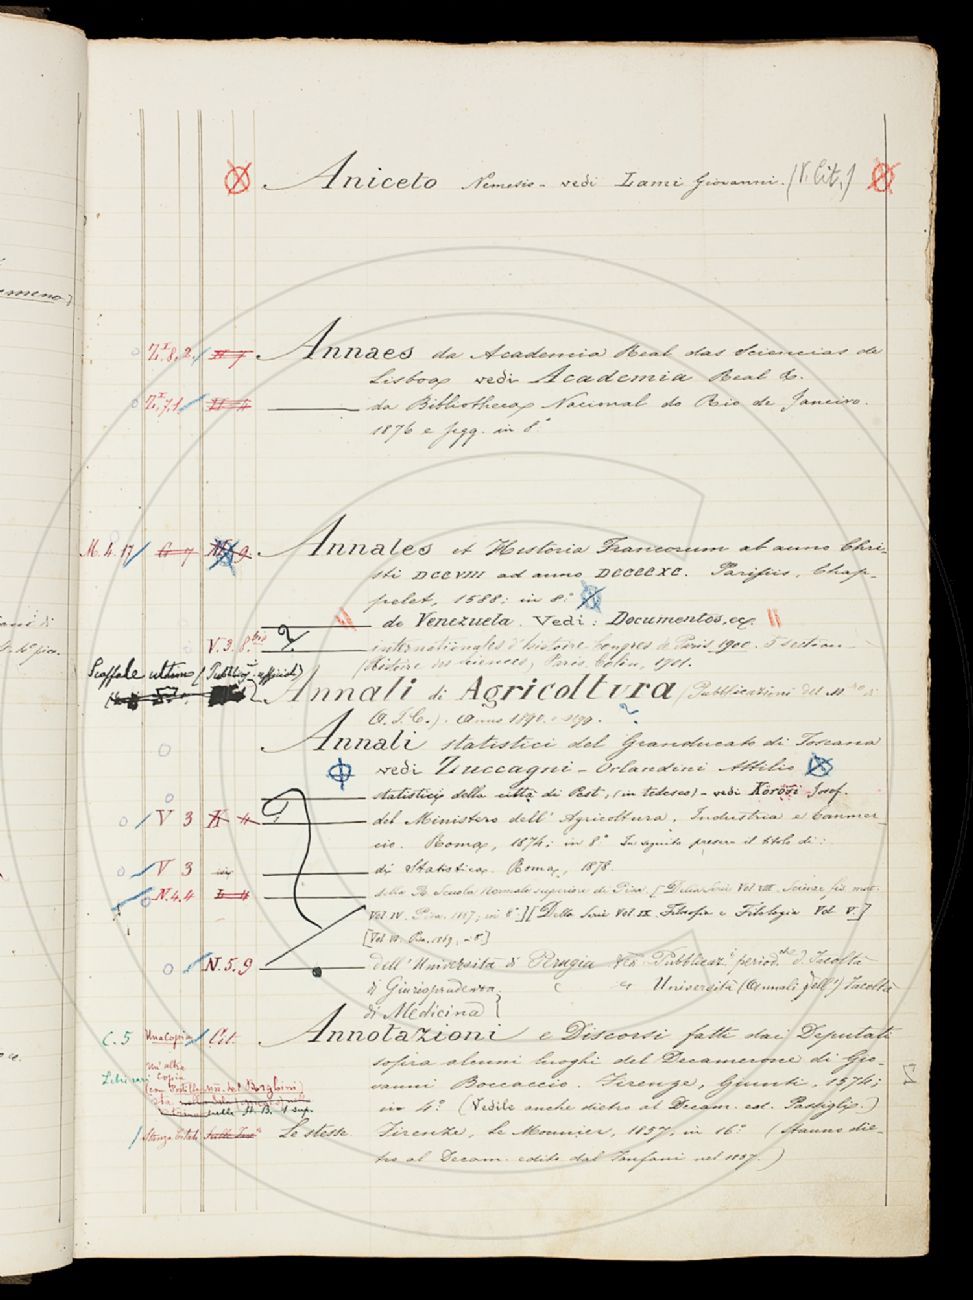 Aniceto Nemesio - vedi Lami Giovanni. (V. Cit.)
Z.ª 8, 2 Annaes da Academia Real das Sciencias de
Lisboa vedi Academia Real &.
Z.ª 7, 1 da Bibliotheca Nacional do Rio de Janeiro.
1876 e segg. in 8°
M. 4. 17 Annales et Historia Francorum ab anno Chri-
sti DCCVIII ad anno DCCCCXC. Parisiis, Chap-
pelet, 1588; in 8°
de Venezuela. Vedi: Documentos, ec.
V. 3. 8 bis internationales d'histoire. Congrès de Paris 1900. 5 section
(histoire des sciences, Paris, Colin, 1901.
Scaffale ultimo (Pubblic.i ufficiali)
Annali di Agricoltura (Pubblicazioni del M.
(A. I. C.). Anno 1890. e segg.
Annali statistici del Granducato di Toscana
vedi Zuccagni - Orlandini Attilio
statistici della città di Pest, (in tedesco) - vedi Körösi Josef.
V 3 del Ministero dell' Agricoltura, Industria e Commer-
cio. Roma, 1874; in 8° In seguito presero il titolo di:
V 3 di Statistica. Roma, 1878.
N. 4. 4 della R. Scuola Normale superiore di Pisa. [Della Serie Vol VIII. Scienze fis. mat.
Vol IV. Pisa. 1887; in 8°.] [Della Serie Vol IX. Filosofia e Filologia Vol V.]
N. 5. 9 dell' Università di Perugia Ved. Pubblicaz.i period.che d. Facoltà
di Giurisprudenza " " Università (Annali dell') Facoltà
di Medicina }
C. 5 Una copia Cit. Annotazioni e Discorsi fatti dai Deputati
sopra alcuni luoghi del Decamerone di Gio-
vanni Boccaccio. Firenze, Giunti, 1574;
in 4° (Vedile anche dietro al Decam. ed. Passigli.)
un'altra
copia
(con Postille mss. del Borghini)
Stanza Citati Le stesse Firenze, Le Monnier, 1857, in 16° (stanno die-
tro al Decam. edito dal Fanfani nel 1857.)